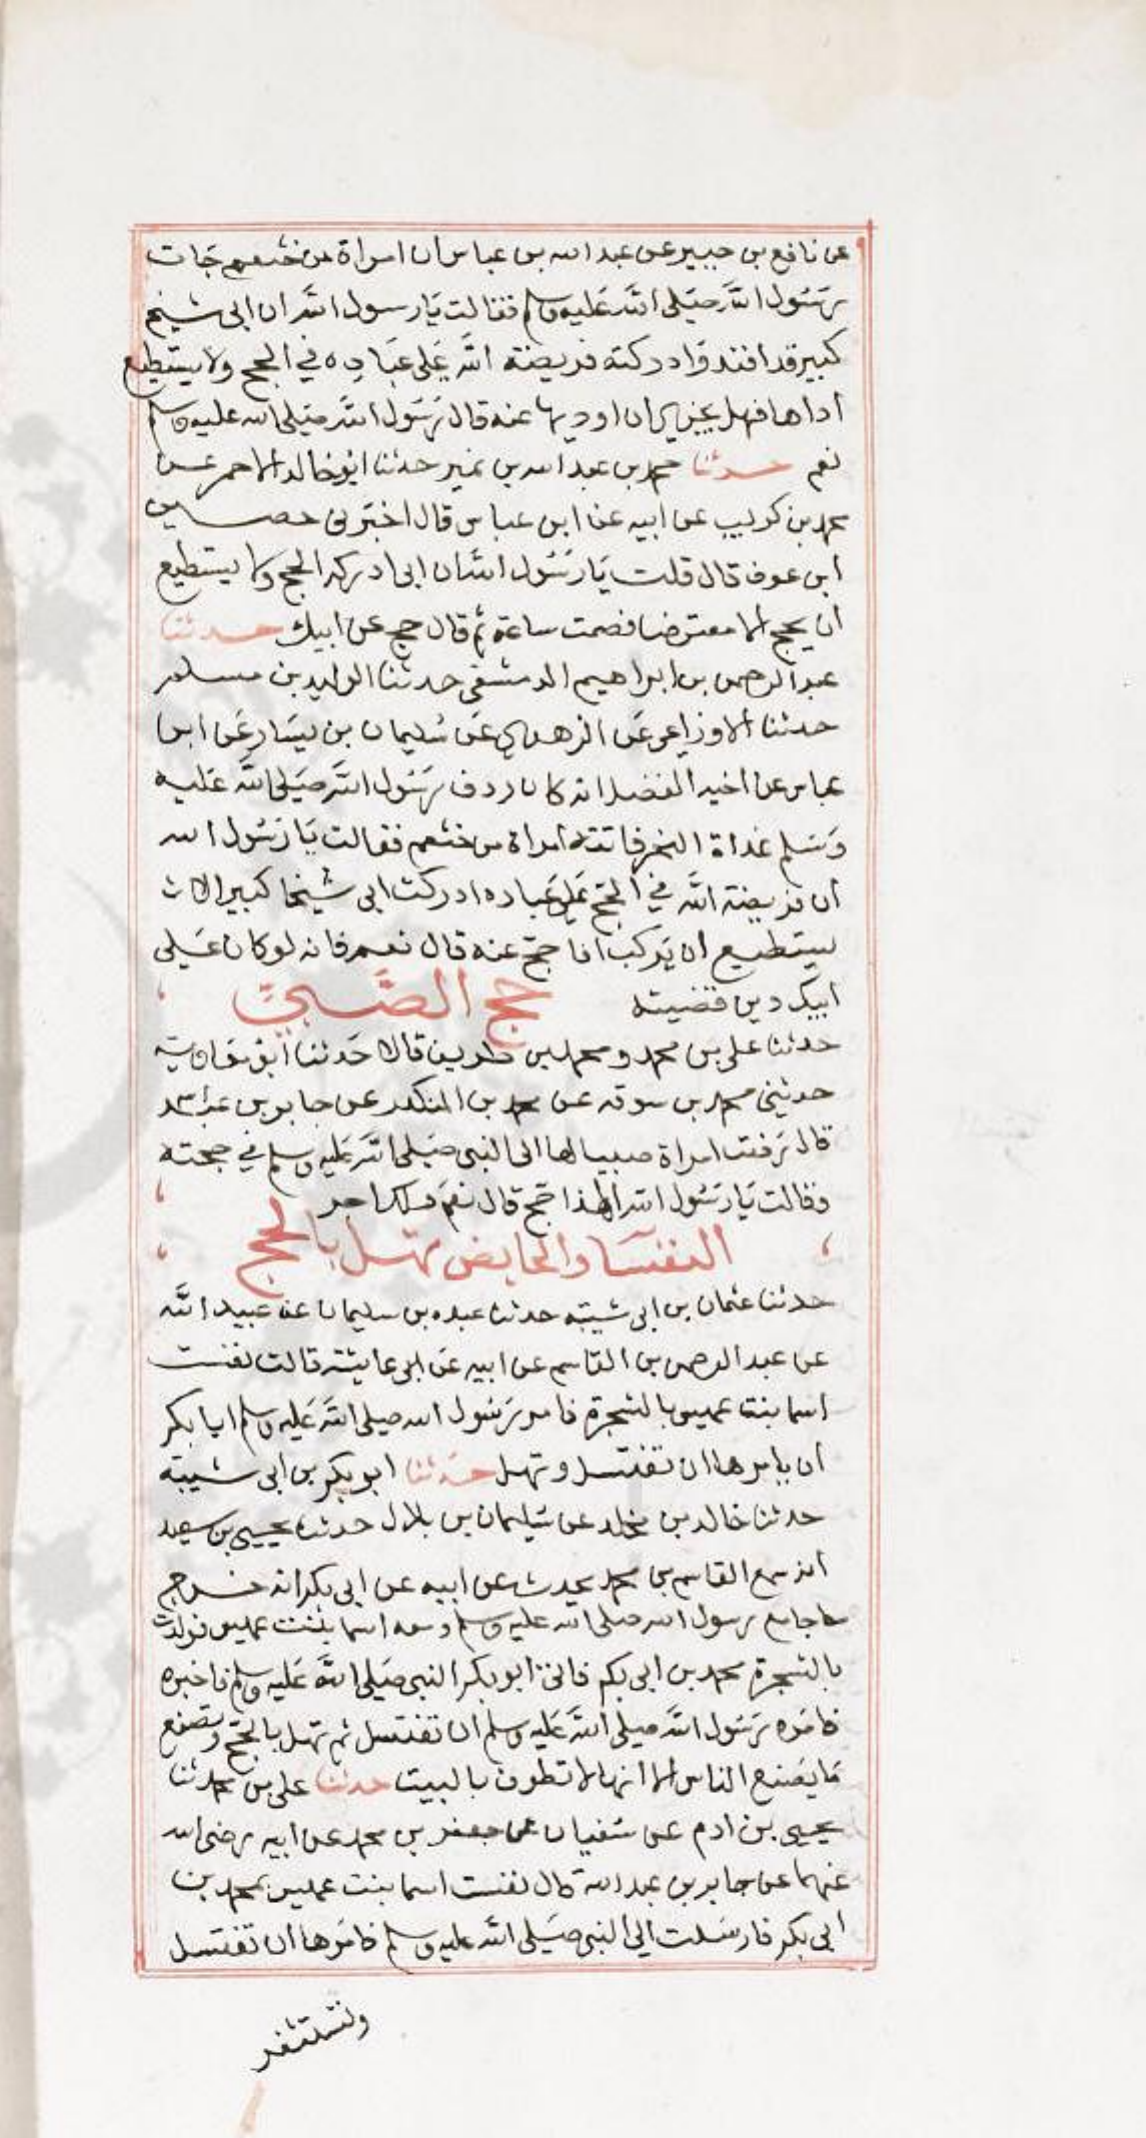 عن نافع بن جبير عن عبد الله بن عباس ان امراة من خثعم جات
رسول الله صلى الله عليه وسلم فقالت يا رسول الله ان ابى شيخ
كبير قد افند وادركته فريضة الله على عباده في الحج ولا يستطيع
اداها فهل يجزى ان اوديها عنه قال رسول الله صلى الله عليه وسلم
نعم حدثنا محمد بن عبد الله بن نمير حدثنا ابو خالد الاحمر عن
محمد بن كريب عن ابيه عن ابن عباس قال اخبرنى حصين
ابن عوف قال قلت يا رسول الله ان ابى ادركه الحج ولا يستطيع
ان يحج الا معترضا فصمت ساعة ثم قال حج عن ابيك حدثنا
عبد الرحمن بن ابراهيم الدمشقى حدثنا الوليد بن مسلم
حدثنا الاوزاعى عن الزهرى عن سليمان بن يسار عن ابن
عباس عن اخيه الفضل انه كان ردف رسول الله صلى الله عليه
وسلم غداة النحر فاتته امراة من خثعم فقالت يا رسول الله
ان فريضة الله في الحج على عباده ادركت ابى شيخا كبيرا لا
يستطيع ان يركب افا حج عنه قال نعم فانه لو كان على
ابيك دين قضيته حج الصبى
حدثنا على بن محمد ومحمد بن طريف قالا حدثنا ابو معاوية
حدثنى محمد بن سوقه عن محمد بن المنكدر عن جابر بن عبد الله
قال رفعت امراة صبيا لها الى النبى صلى الله عليه وسلم في حجته
فقالت يا رسول الله الهذا حج قال نعم ولك اجر
النفسا والحايض تهل بالحج
حدثنا عثمان بن ابى شيبه حدثنا عبده بن سليمان عن عبيد الله
عن عبد الرحمن بن القاسم عن ابيه عن عايشة قالت نفست
اسما بنت عميس بالشجرة فامر رسول الله صلى الله عليه وسلم ابا بكر
ان يامرها ان تغتسل وتهل حدثنا ابو بكر بن ابى شيبه
حدثنا خالد بن مخلد عن سليمان بن بلال حدثنا يحيى بن سعيد
انه سمع القاسم بن محمد يحدث عن ابيه عن ابى بكر انه خرج
حاجا مع رسول الله صلى الله عليه وسلم ومعه اسما بنت عميس فولدت
بالشجرة محمد بن ابى بكر فاتى ابو بكر النبى صلى الله عليه وسلم فاخبره
فامره رسول الله صلى الله عليه وسلم ان تغتسل ثم تهل بالحج وتصنع
ما يصنع الناس الا انها لا تطوف بالبيت حدثنا على بن محمد ثنا
يحيى بن ادم عن سفيان عن جعفر بن محمد عن ابيه رضى الله
عنهما عن جابر بن عبد الله قال نفست اسما بنت عميس بمحمد بن
ابى بكر فارسلت الى النبى صلى الله عليه وسلم فامرها ان تغتسل
وتستثفر